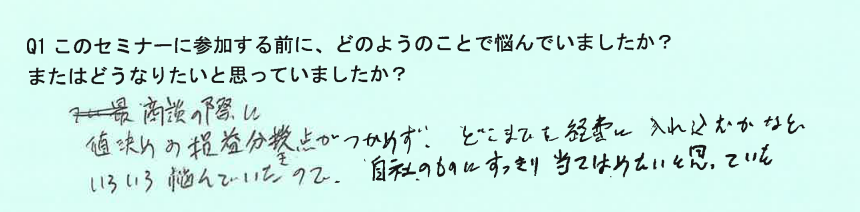 Q1 このセミナーに参加する前に、どのようのことで悩んでいましたか？
またはどうなりたいと思っていましたか？
商談の際に
値決めの損益分岐点がつかめず、どこまでを経費に入れ込むかなど
いろいろ悩んでいたので、自社のものにすっきり当てはめたいと思っていた